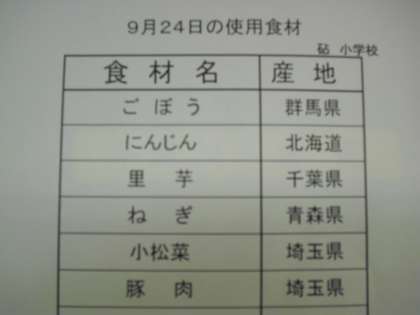 9月24日の使用食材
砧 小学校
食材名 産地
ごぼう 群馬県
にんじん 北海道
里芋 千葉県
ねぎ 青森県
小松菜 埼玉県
豚肉 埼玉県